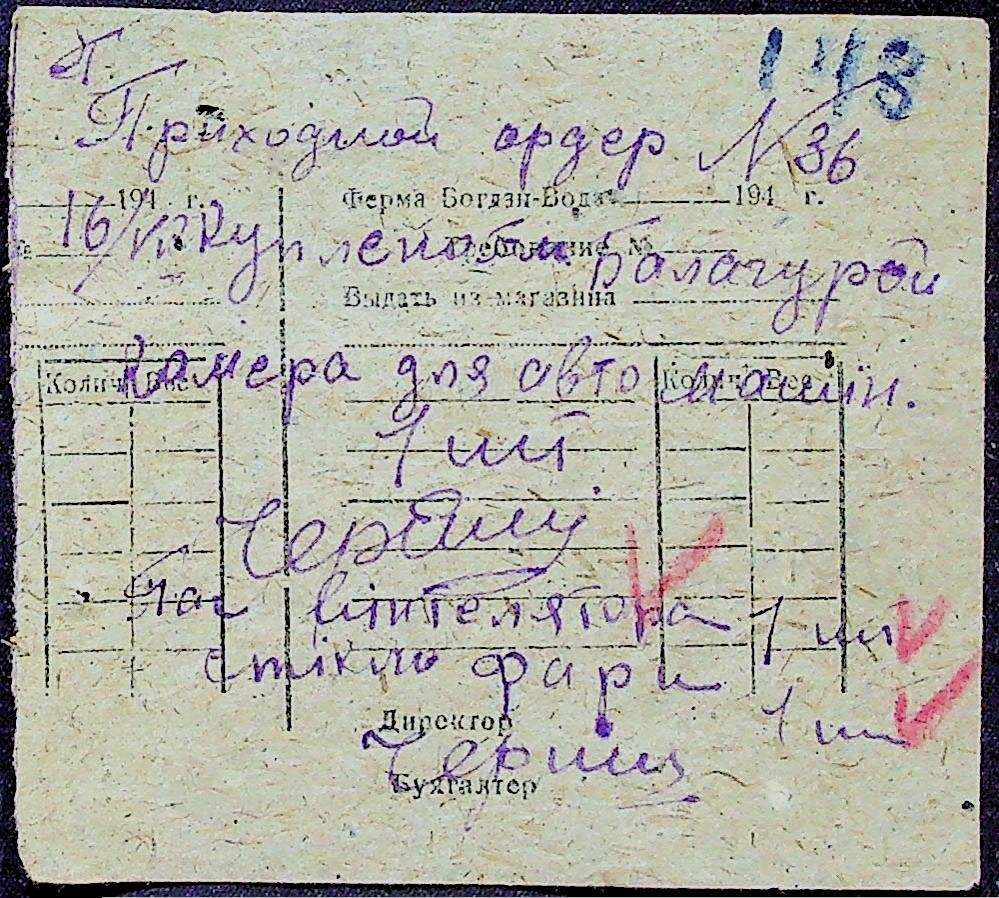 143
Приходной ордер № 36
194 г. Ферма Богдан-Вода 194 г.
16/VII куплено Балагурой
№ Требование №
Выдать из магазина
Камера для авто машин.
Колич. Вес Колич. Вес
1 шт
Пас вintелятора 1 шт
стікло фари 1 шт
Директор
Бухгалтер